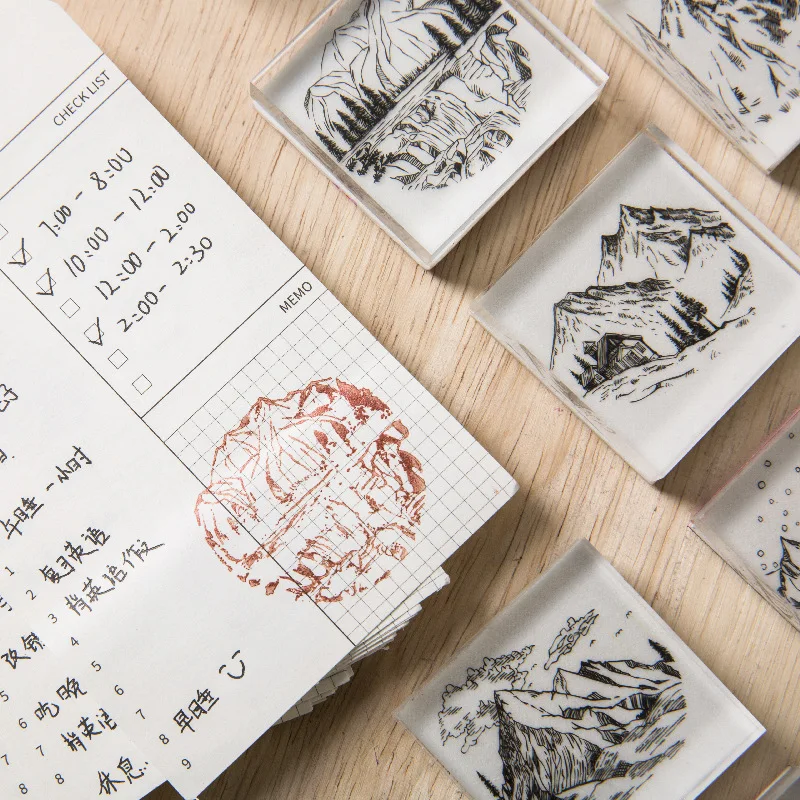 CHECK LIST
7:00 - 8:00
10:00 - 12:00
12:00 - 2:00
2:00 - 2:30
MEMO
午睡 一小时
1
2 复习英语
3 背英语作文
4
5
6 吃晚
6
7 背英语
7
8 早睡
8 休息
9